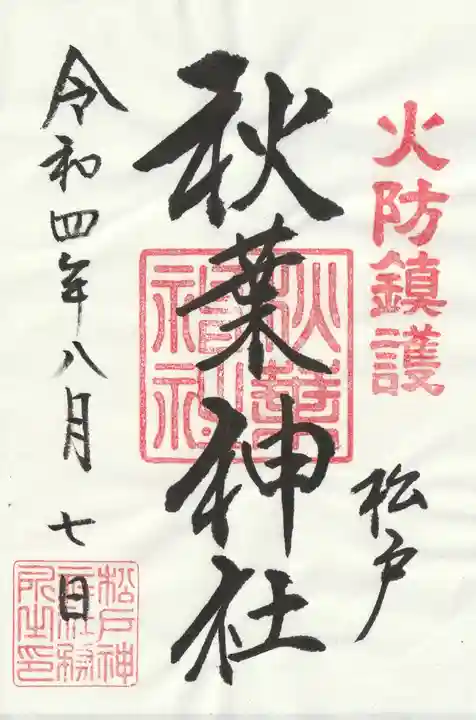 火防鎮護
松戸
秋葉神社
秋葉神社
令和四年八月七日
松戸神社務所之印